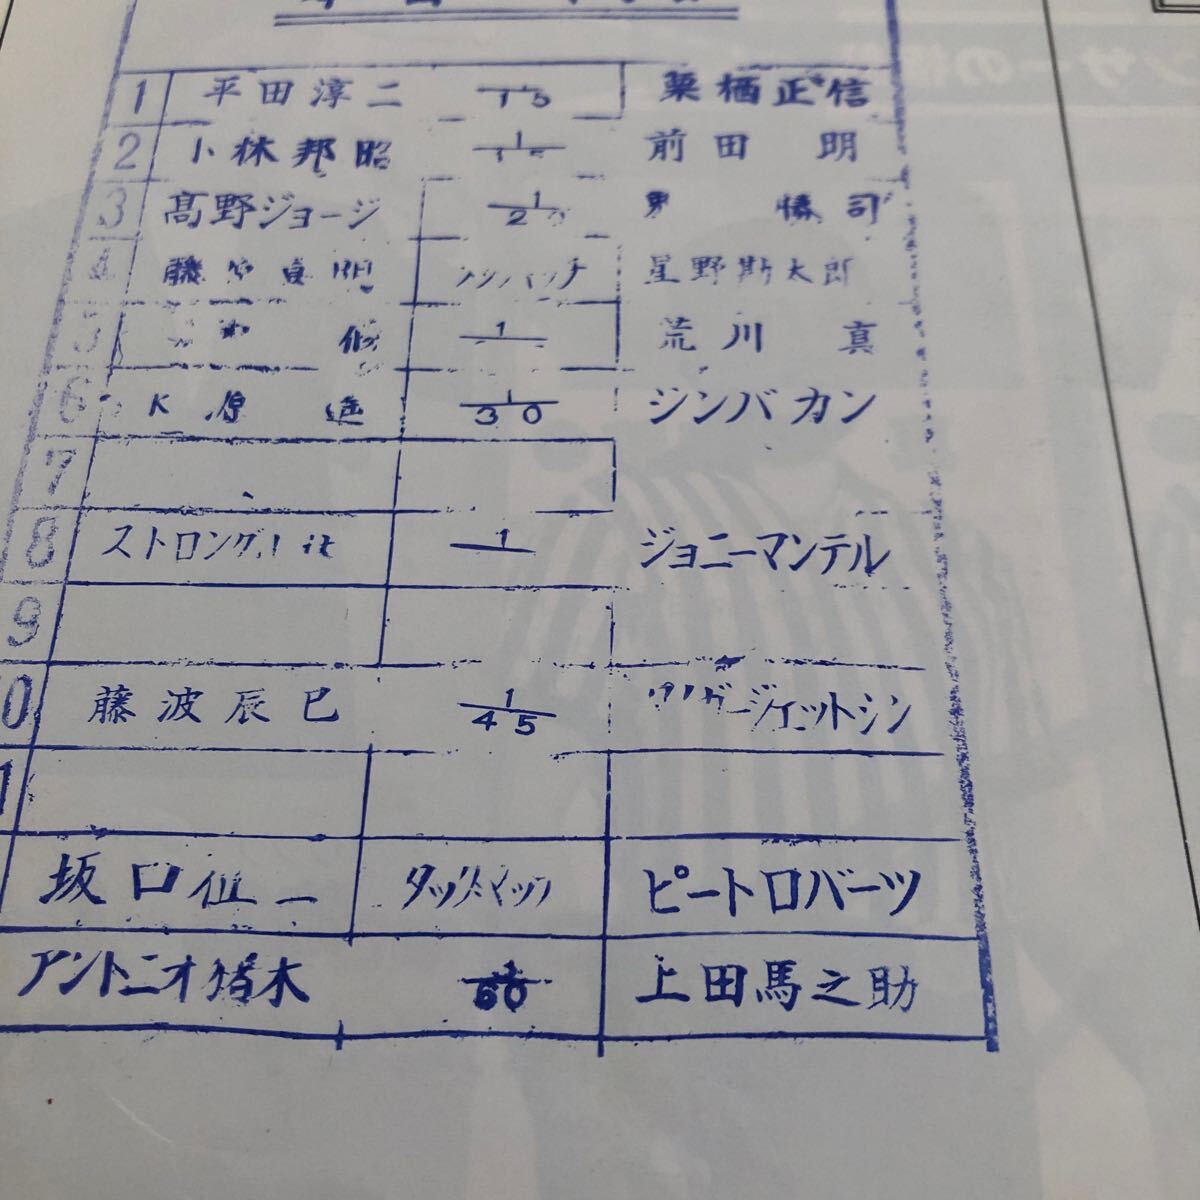 1 平田淳二 1/15 栗栖正信
2 小林邦昭 1/15 前田 明
3 髙野ジョージ 1/20 勝司
4 藤 星野勘太郎
5 1 荒川 真
6 1/30 ジンバ カン
7
8 ストロング 1 ジョニーマンテル
9
0 藤波辰巳 1/45 タイガージェットシン
1
坂口征二 タッグマッチ ピートロバーツ
アントニオ猪木 1/60 上田馬之助
ンサーの